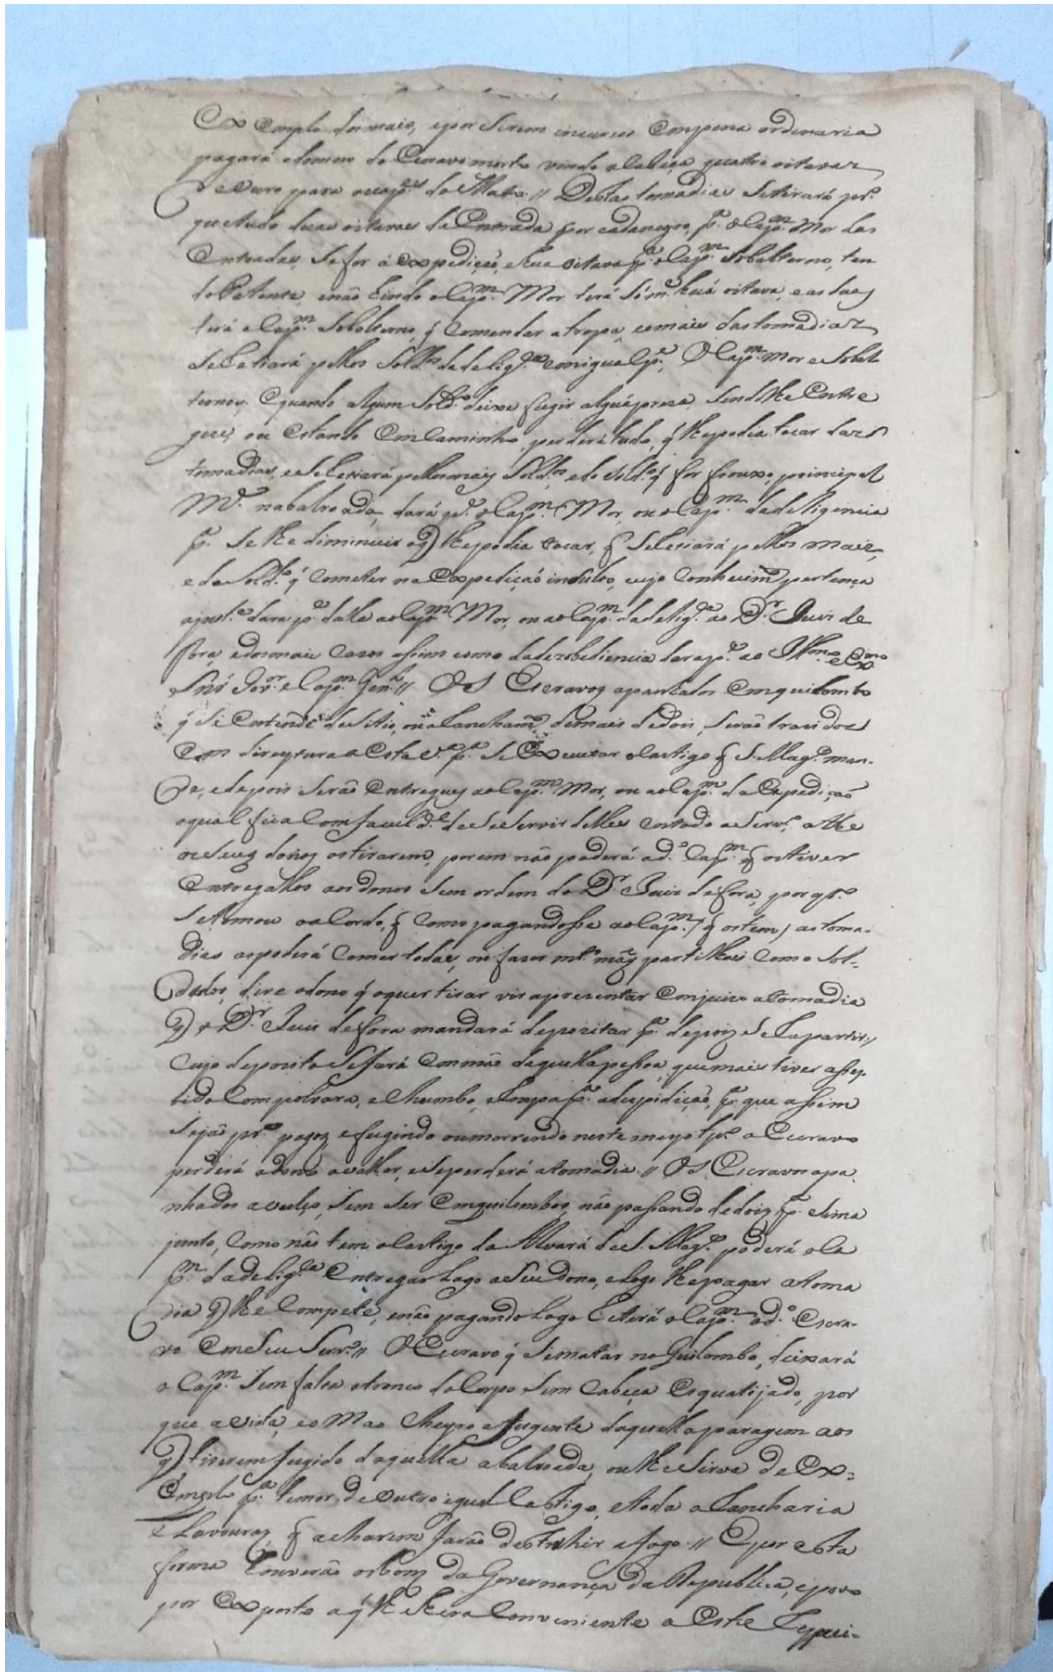 Exemplo dos mais, epor Serem incursos Empena ordinaria
pagará odono do Escravo morto vindo aCabeça quatro oitavas
de ouro para ocap.m do Matto // Destas tomadias Setirará pr.o
que tudo duas oitavas de Entrada por cadanegro, p.a oCap.m Mor das
Entradas, Se for á Expedição, ehua oitava p.a oCap.m Sobalterno, ten
do Patente, enão hindo oCap.m Mor terá Som.te huá oitava, eas duas
terá oCap.m Sobalterno, q̃ Comendar atropa, eomais dastomadias
Se pellos Sold.os dadelig.ca emigual p.e, OCap.m mor eSobal
ternos, Equando algum Sold.o deixe fugir alguápreza, Sendolhe Entre
gue, ou Estando EmCaminho, perderá tudo, q̃ lhepodia tocar das
tomadias, e pellosmais Sold.os, edo Sold.o q̃ for frouxo, principal
M.te nabalroada, dará p.e oCap.m Mor, ou oCap.m dadeligencia
p.a Selhe diminuir oq̃ lhepodia tocar, q̃ pellos mais,
edoSold.o q̃ Cometer na Expedição insulto, cujo Conhecim.to pertença
ajust.a dara p.e delle aoCap.m Mor, ou aoCap.m dadelig.ca ao D.r Juis de
fora, edosmais Casos assim como dadezobediencia dara p.e ao Illm.o e Ex.mo
Snr Gov.or eCap.m Gen.al // OS Escravos apanhados Emquilombo
q̃ Se Entende deSitio, ou aLancham.to demais dedois, Serão trazidos
Em direytura aEsta V.a p.a Se Executar oCastigo q̃ S. Mag.e man-
da, edepois Serão Entregues aoCap.m Mor, ou aoCap.m da Expedição
oqual fica Com facuId.e de SeServir delles Emtodo oServ.o athe
os Seus donos ostirarem, porem não poderá od.o Cap.m q̃ ostiver
Entregallos aos donos Sem ordem do D.r Juis defora, por q.to
Setomou oaCordo, q̃ Como pagandosse aoCap.m / q̃ ostem / astoma-
dias aspoderá Comer todas, ou fazer m.to más partilhas Com os Sol-
dados, deve odono q̃ oquer tirar vir aprezentar Emjuizo atomadia
q̃ o D.r Juis defora mandará depozitar p.a depois Se Repartir,
Cujo depozito Sefará Emmão daquellapessoa, quemais tiver assis-
tido Compolvora, eChumbo, eRoupa p.a aExpedição, p.a que assim
Sejão pr.o pagos efugindo oumorrendo neste meyo tp.o oEscravo
perderá odono ovallor, eSeperderá atomadia // OS Escravos apa
nhados avulso, Sem Ser Emquilombos, não passando dedois p.a Sima
junto, Como não tem oCastigo do Alvará deS. Mag.e poderá oCa
p.m dadelig.ca Entregar Logo aSeu dono, eLogo lhepagar atoma
dia q̃ lhe Compete, enão pagando Logo Reterá oCap.m od.o Escra-
vo EmSeu Serv.o // OEscravo q̃ Sematar no Quilombo, deixará
oCap.m Sem falta otronco doCorpo Sem Cabeça Esquartijado, por
que avista, eo Mao Cheyro afugente daquellaparagem aos
q̃ tiverem fugido daquella abalroada, ou lhe Sirva de Ex=
Emplo p.a temor, de Outro igual Castigo, etoda a Rancharia
e Lavouras, q̃ acharem farão destruhir afogo // Epor esta
forma Louverão osbons da Governança da Republica, epovo
por Exposto aq̃ lhe hera Conveniente a Este